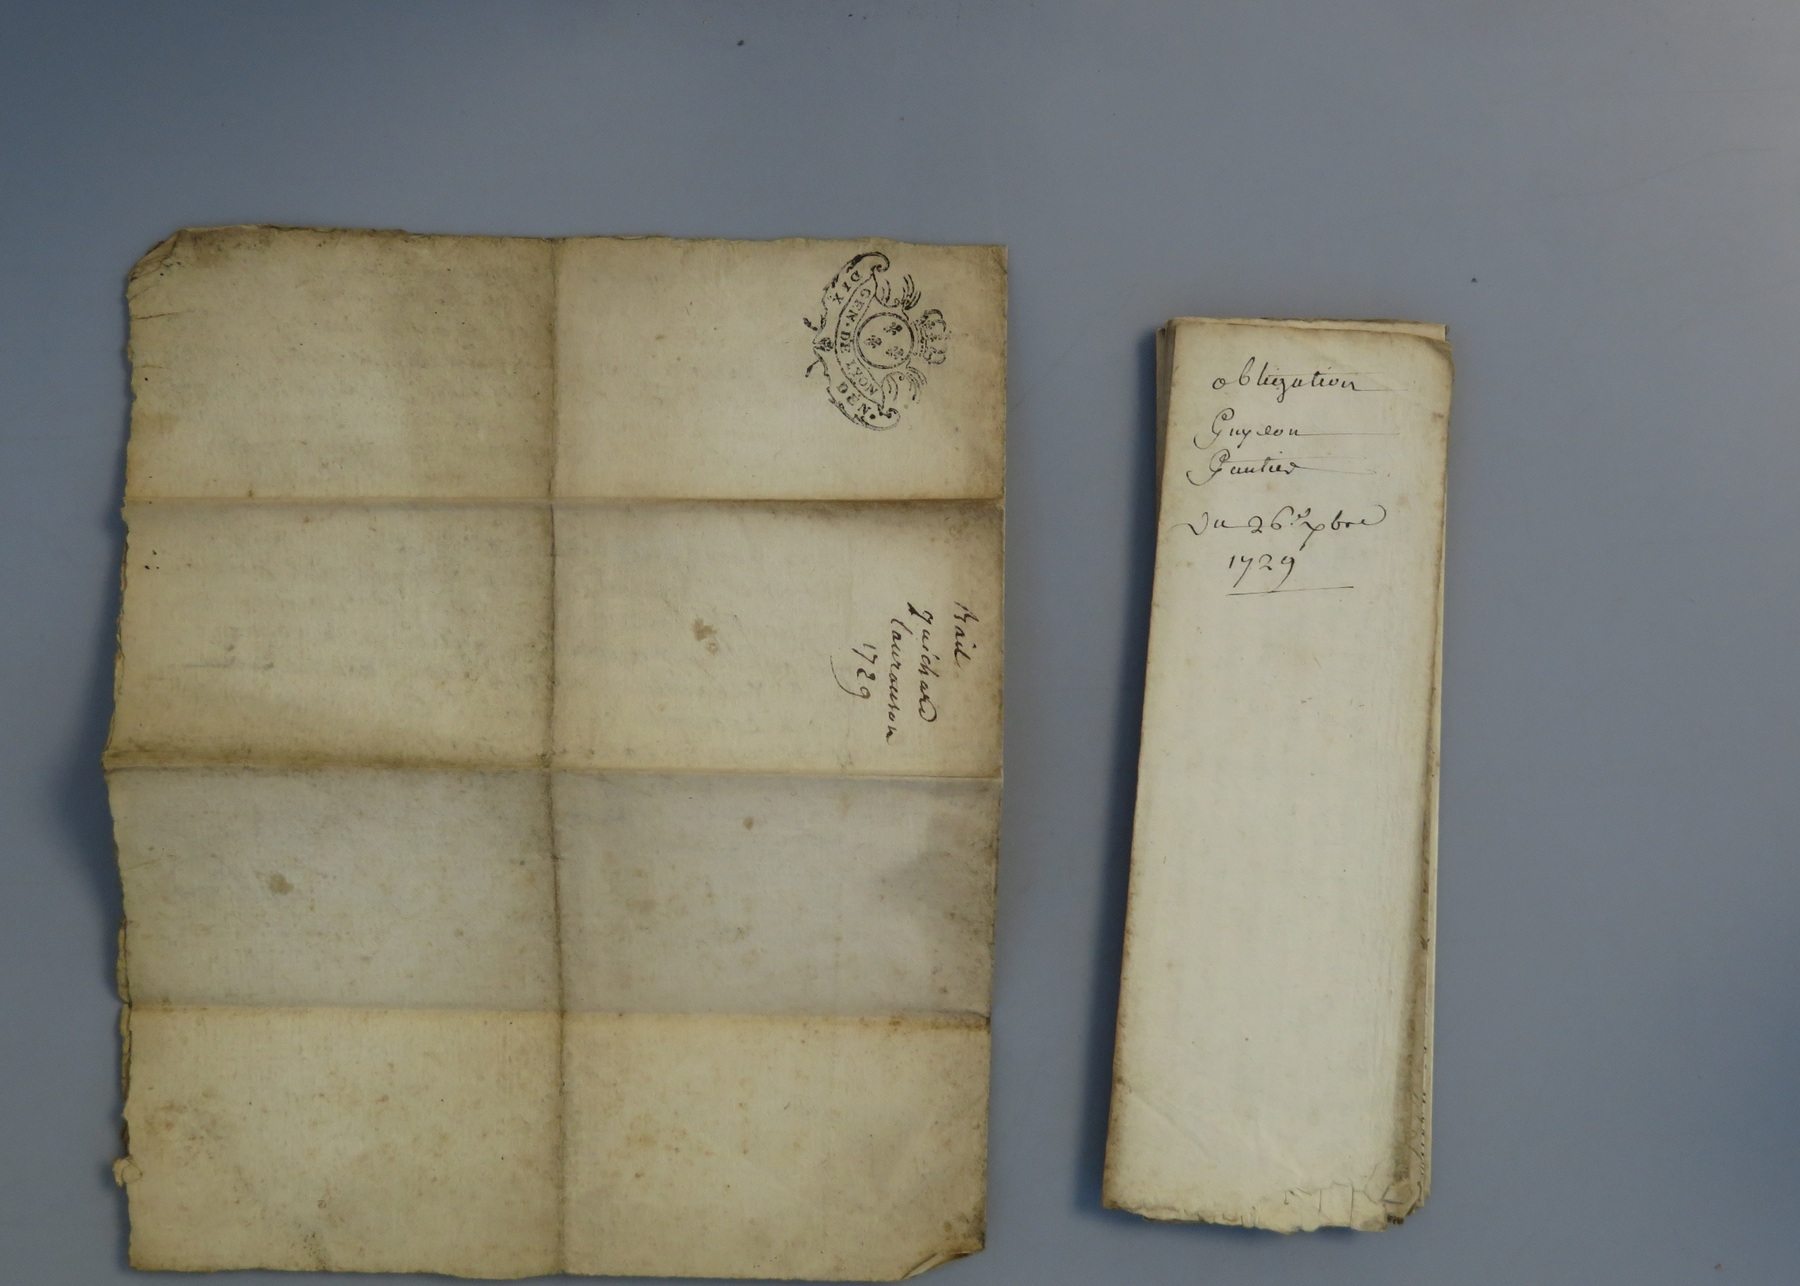 GEN · DE
Bail
guichard
laurouson
1729
obligation
Guydon
Gautier
Du 26.e xbre
1729